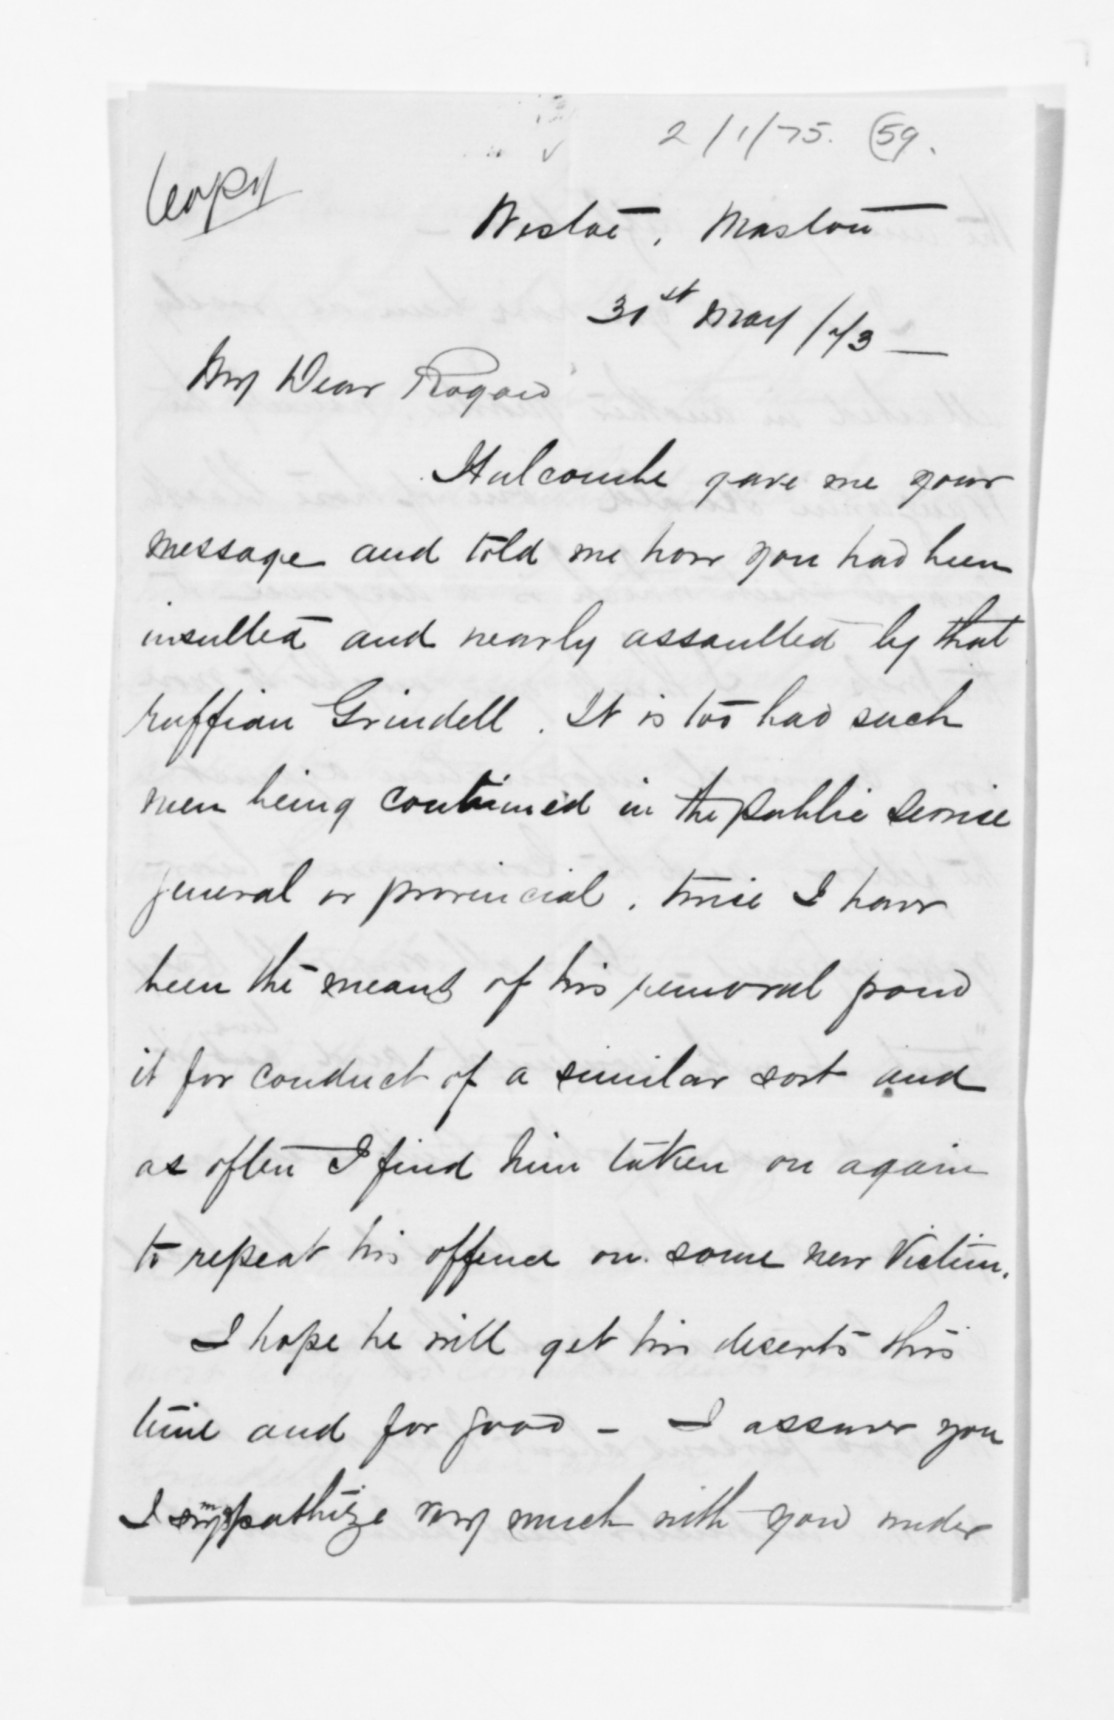 2/1/75. 59.
Copy
Westoe, Marton
31st May /73 —
My Dear Rogan
Halcombe gave me your
message and told me how you had been
insulted and nearly assaulted by that
ruffian Grindell. It is too bad such
men being continued in the public service
general or provincial. twice I have
been the means of his removal
it for conduct of a similar sort and
as often I find him taken on again
to repeat his offence on some new victim.
I hope he will get his deserts this
time and for good – I assure you
I sympathize very much with you under